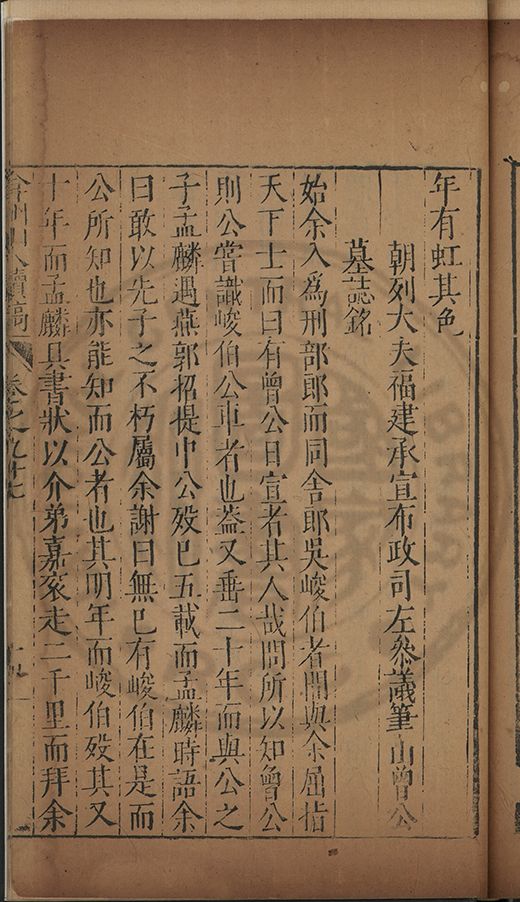 年有虹其色
朝列大夫福建承宣布政司左叅議筆山曾公
墓誌銘
始余入爲刑部郎而同舍郎吳峻伯者間與余屈指
天下士而曰有曾公日宣者其人哉問所以知曾公
則公嘗識峻伯公車者也葢又垂二十年而與公之
子孟麟遇燕郭招提中公歿已五載而孟麟時語余
曰敢以先子之不朽屬余謝曰無已有峻伯在是而
公所知也亦能知而公者也其明年而峻伯歿其又
十年而孟麟具書狀以介弟嘉㐮走二千里而拜余
弇州山人續稿
卷之九十七